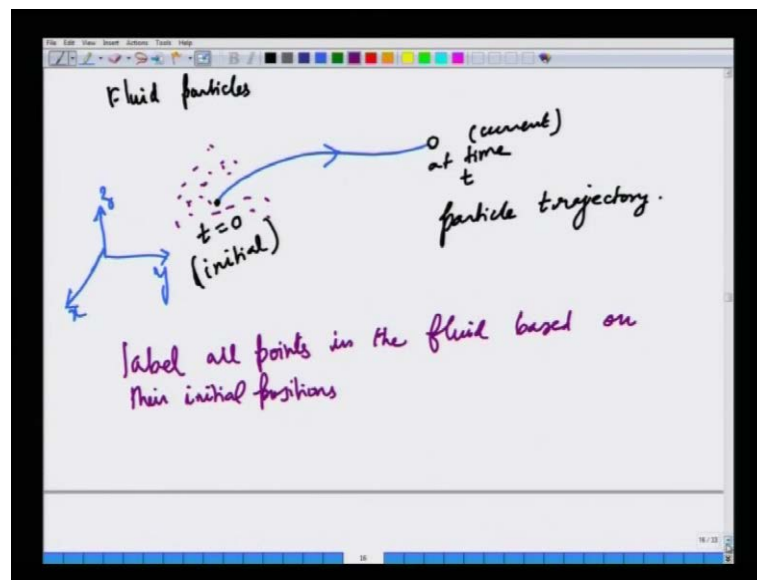 File Edit View Insert Actions Tools Help
Fluid particles
(current)
at time
t
particle trajectory.
t=0
(initial)
z
y
x
label all points in the fluid based on
their initial positions
16